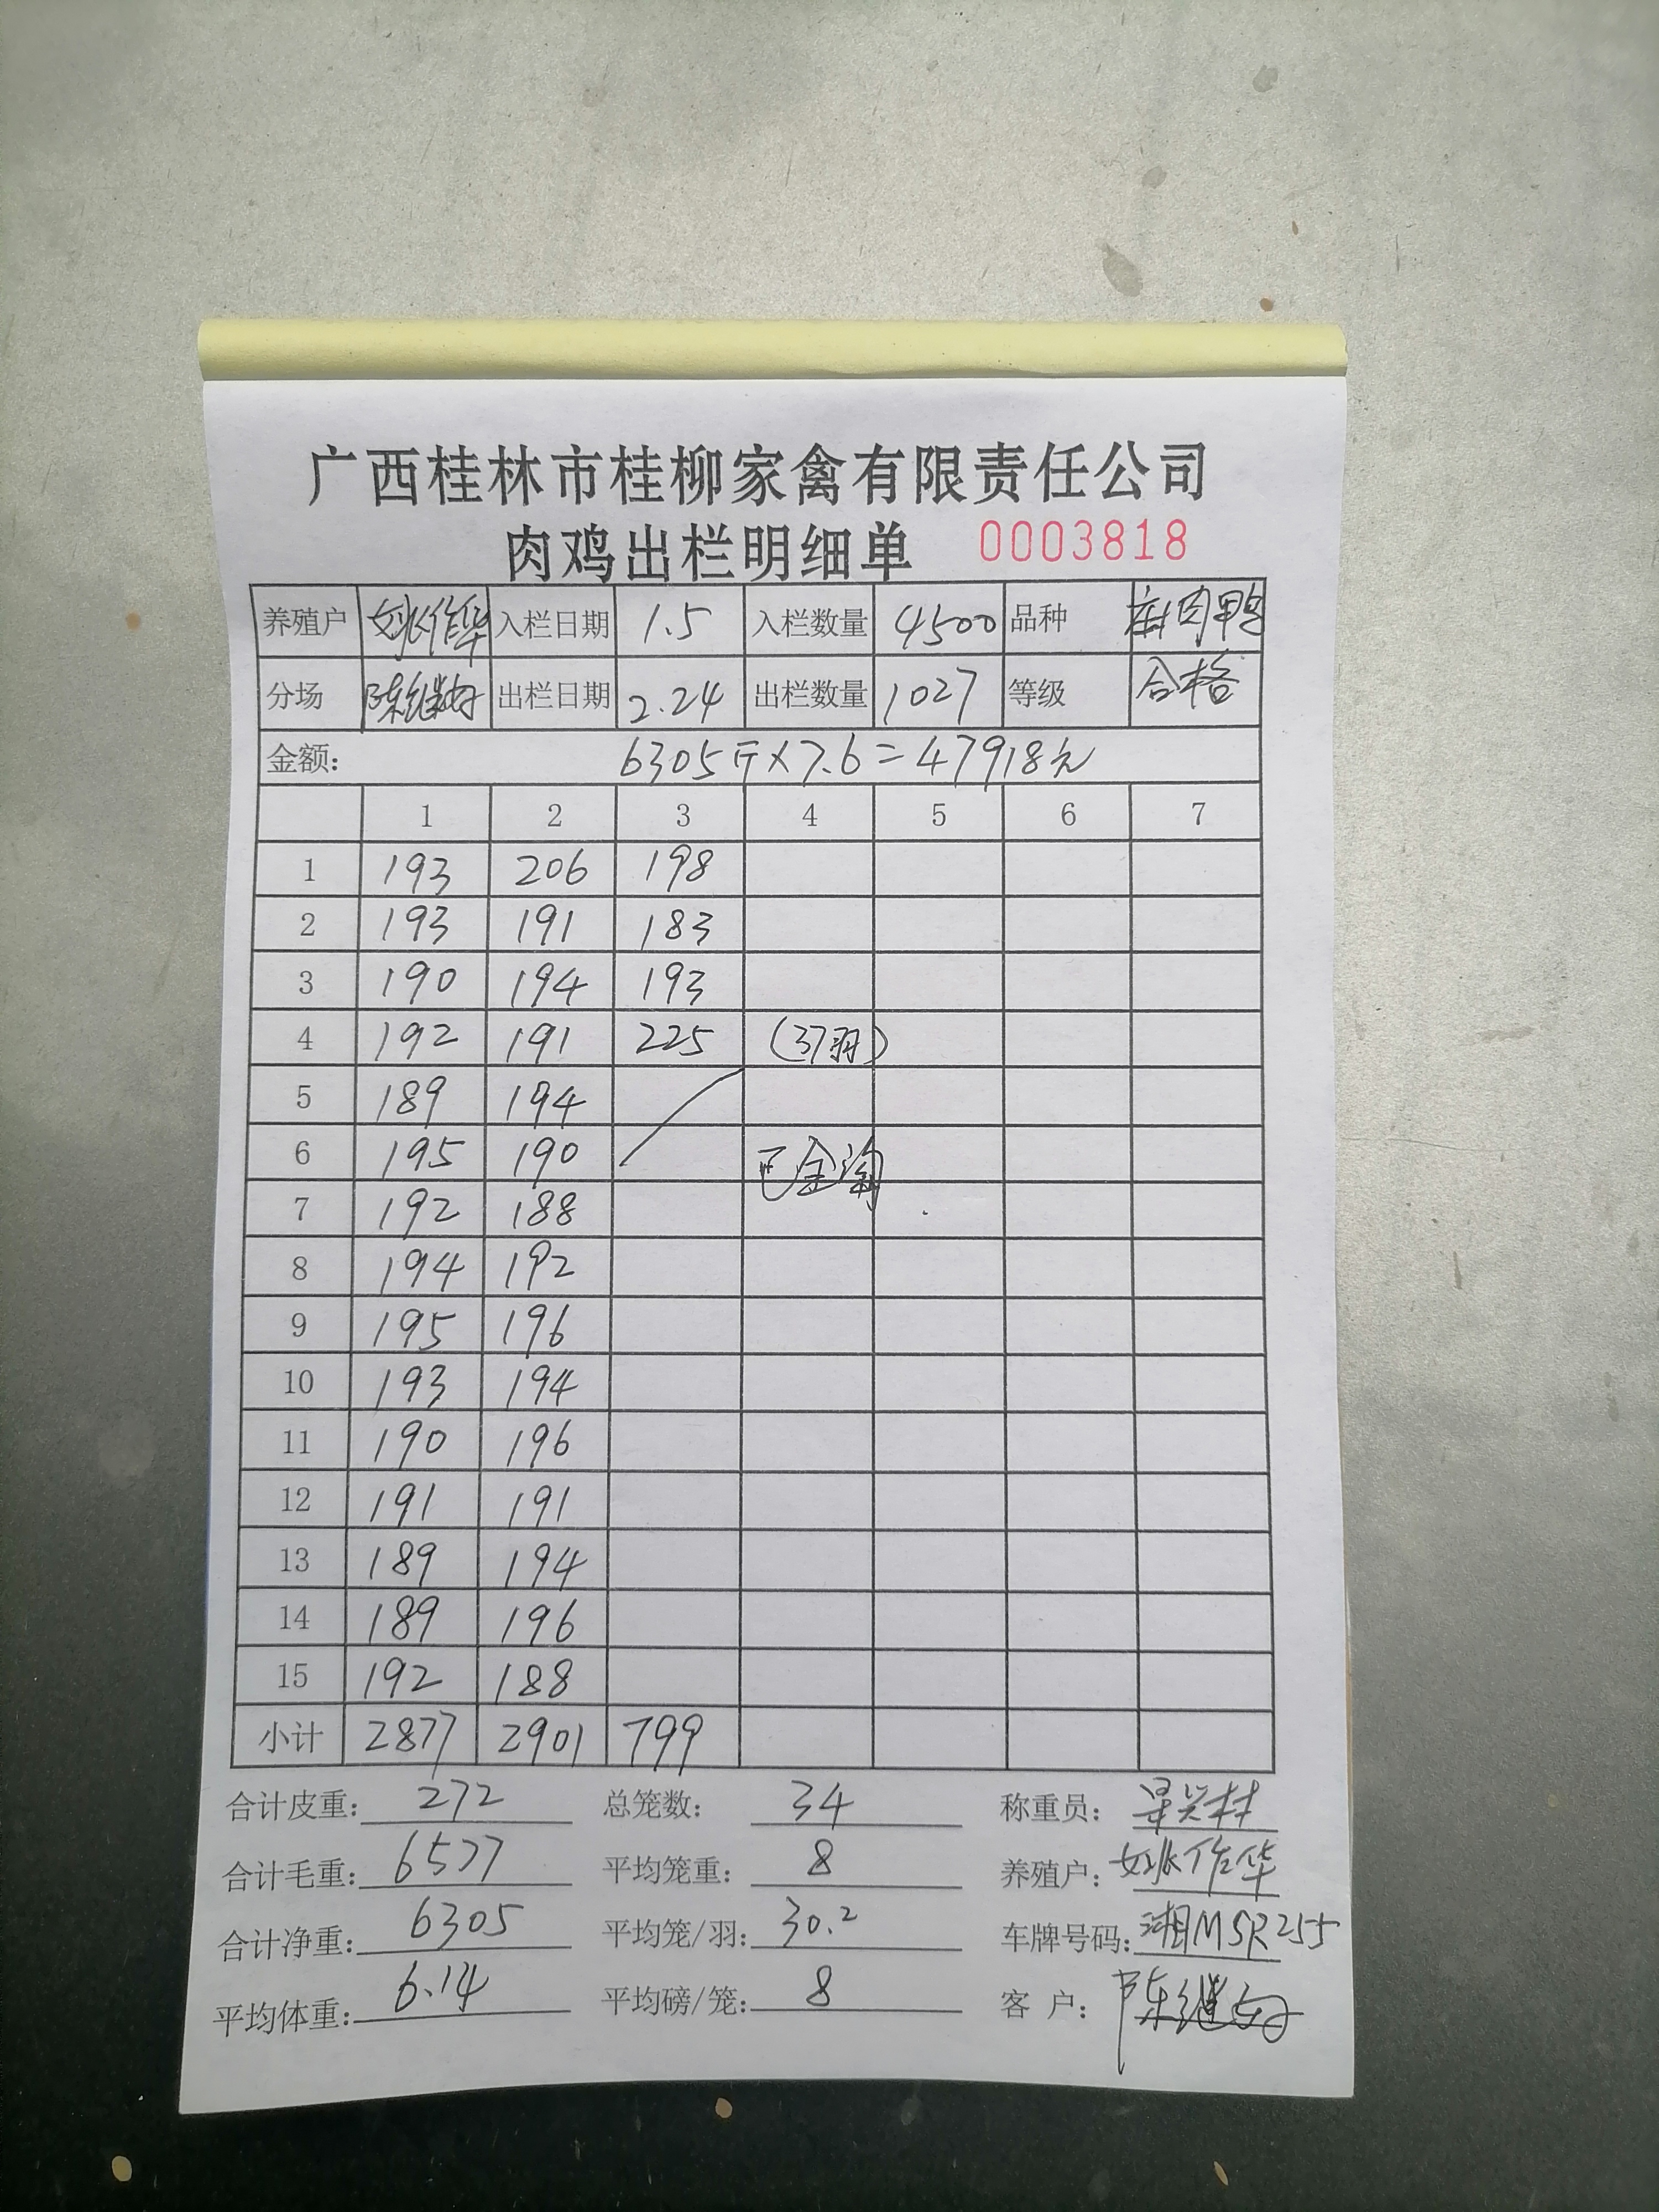 广西桂林市桂柳家禽有限责任公司
肉鸡出栏明细单 0003818
养殖户 姚作华 入栏日期 1.5 入栏数量 4500 品种 麻肉鸭
分场 陈继 出栏日期 2.24 出栏数量 1027 等级 合格
金额: 6305斤×7.6=47918元
1 2 3 4 5 6 7
1 193 206 198
2 193 191 183
3 190 194 193
4 192 191 225 (37羽)
5 189 194
6 195 190
7 192 188
8 194 192
9 195 196
10 193 194
11 190 196
12 191 191
13 189 194
14 189 196
15 192 188
小计 2877 2901 799
合计皮重: 272 总笼数: 34 称重员:
合计毛重: 6577 平均笼重: 8 养殖户: 姚作华
合计净重: 6305 平均笼/羽: 30.2 车牌号码: 湘MSR255
平均体重: 6.14 平均磅/笼: 8 客 户: 陈继